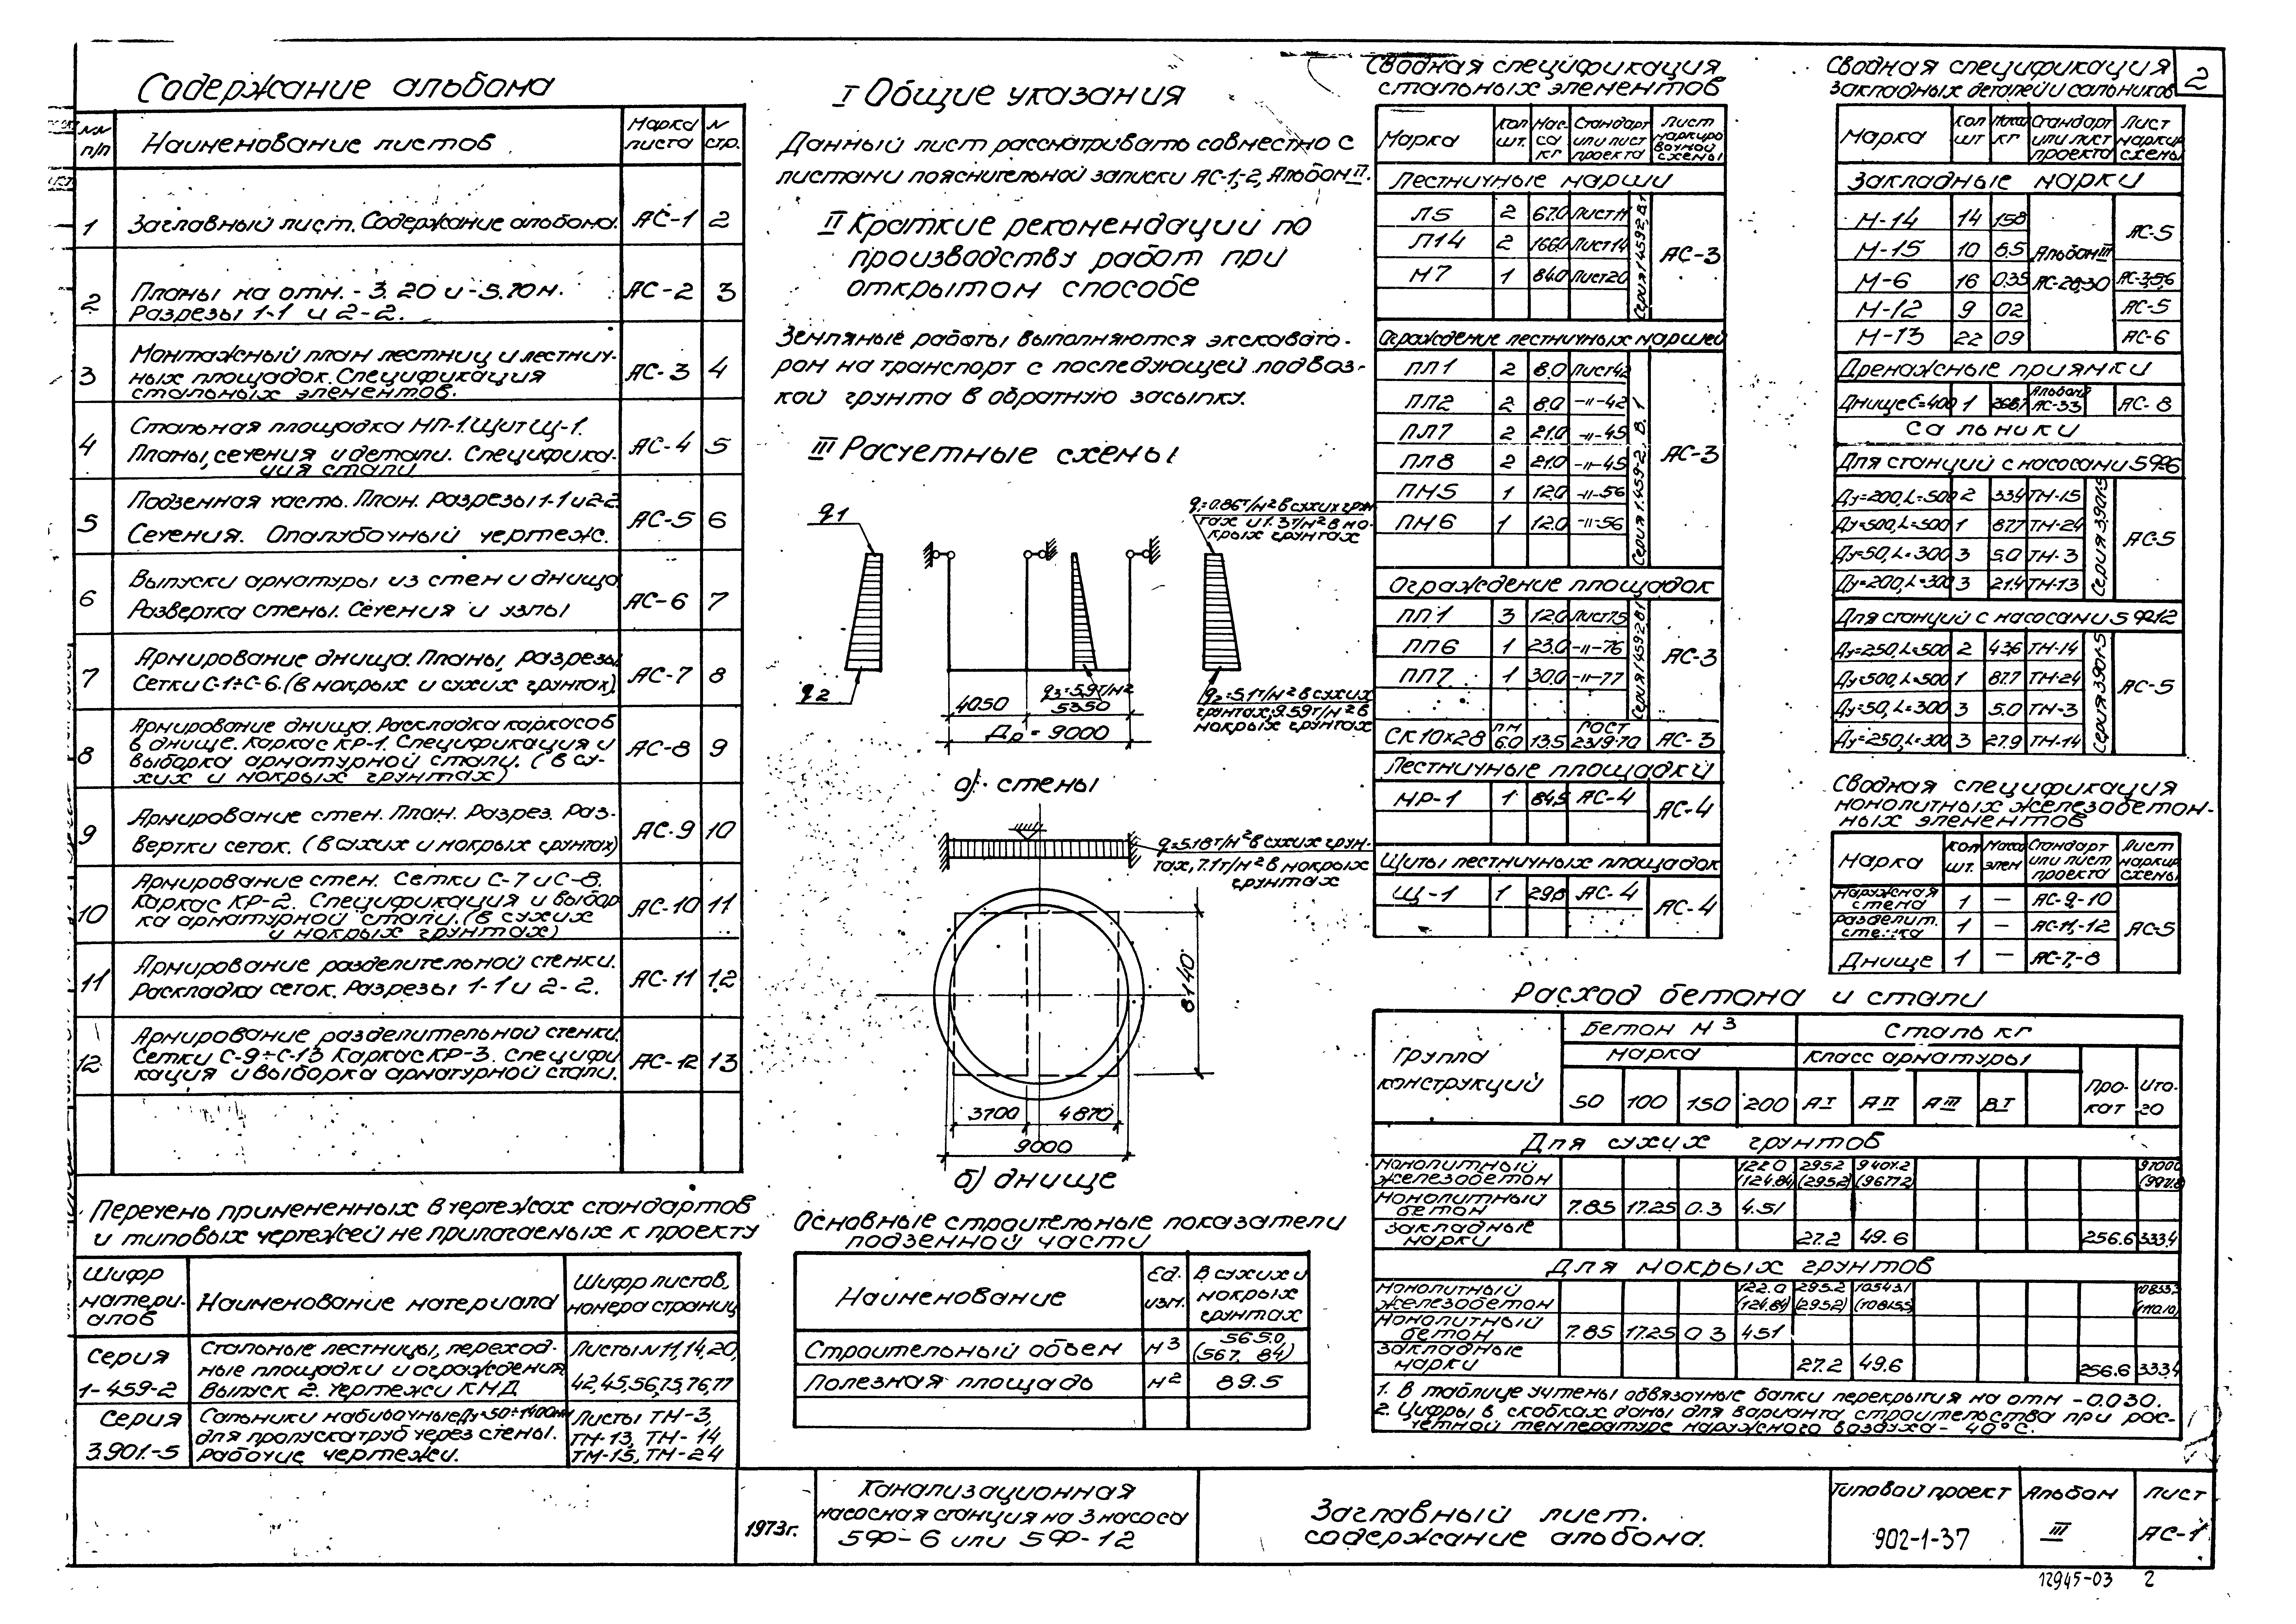 2
Содержание альбома
№№ п/п
Наименование листов
Марка листа
N стр.
1
Заглавный лист. Содержание альбома.
АС-1
2
2
Планы на отм. -3.20 и -5.70м.
Разрезы 1-1 и 2-2.
АС-2
3
3
Монтажный план лестниц и лестнич-
ных площадок. Спецификация
стальных элементов.
АС-3
4
4
Стальная площадка НП-1. Щит Щ-1.
Планы, сечения и детали. Специфика-
ция стали
АС-4
5
5
Подземная часть. План. Разрезы 1-1 и 2-2
Сечения. Опалубочный чертеж.
АС-5
6
6
Выпуски арматуры из стен и днища
Развертка стены. Сечения и узлы
АС-6
7
7
Армирование днища. Планы, разрезы
Сетки С-1÷С-6. (в мокрых и сухих грунтах)
АС-7
8
8
Армирование днища. Раскладка каркасов
в днище. Каркас КР-1. Спецификация и
выборка арматурной стали. (в су-
хих и мокрых грунтах)
АС-8
9
9
Армирование стен. План. Разрез. Раз-
вертки сеток. (в сухих и мокрых грунтах)
АС-9
10
10
Армирование стен. Сетки С-7 и С-8.
Каркас КР-2. Спецификация и выбор
ка арматурной стали. (в сухих
и мокрых грунтах)
АС-10
11
11
Армирование разделительной стенки.
Раскладка сеток. Разрезы 1-1 и 2-2.
АС-11
12
12
Армирование разделительной стенки.
Сетки С-9÷С-13 Каркас КР-3. Специфи
кация и выборка арматурной стали.
АС-12
13
Перечень примененных в чертежах стандартов
и типовых чертежей не прилагаемых к проекту
Шифр матери- алов
Наименование материала
Шифр листов, номера страниц
Серия 1-459-2
Стальные лестницы, переход-
ные площадки и ограждения
Выпуск 2. Чертежи КМД
Листы №11,14,20,
42,45,56,75,76,77
Серия 3.901-5
Сальники набивные Ду=50÷1400мм
для пропуска труб через стены.
Рабочие чертежи.
Листы ТМ-3,
ТМ-13, ТМ-14
ТМ-15, ТМ-24
I Общие указания
Данный лист рассматривать совместно с
листами пояснительной записки АС-1,-2, Альбом II.
II Краткие рекомендации по
производству работ при
открытом способе
Земляные работы выполняются экскавато-
ром на транспорт с последующей подвоз-
кой грунта в обратную засыпку.
III Расчетные схемы
q1
q2
q1=0.86т/м² в сухих грун-
тах и 1.3т/м² в мо-
крых грунтах
q3=5.9т/м²
q2=5.1т/м² в сухих
грунтах; 9.59т/м² в
мокрых грунтах
4050
5350
Др=9000
а) стены
q=5.18т/м² в сухих грун-
тах, 7.1т/м² в мокрых
грунтах
8140
3700
4870
9000
б) днище
Основные строительные показатели
подземной части
Наименование
Ед. изм.
В сухих и мокрых грунтах
Строительный объем
м³
565.0
(567.84)
Полезная площадь
м²
89.5
Сводная спецификация
стальных элементов
Марка
Кол шт.
Мас- са кг
Стандарт или лист проекта
Лист маркиро вочной схемы
Лестничные марши
Л5 2 67.0 Лист11
Л14 2 166.0 Лист14
М7 1 84.0 Лист20
Серия 1.459-2, В.1
АС-3
Ограждение лестничных маршей
ПЛ1 2 8.0 Лист42
ПЛ2 2 8.0 -"-42
ПЛ7 2 21.0 -"-45
ПЛ8 2 21.0 -"-45
ПМ5 1 12.0 -"-56
ПМ6 1 12.0 -"-56
Серия 1.459-2. В.1
АС-3
Ограждение площадок
ПП1 3 12.0 Лист75
ПП6 1 23.0 -"-76
ПП7 1 30.0 -"-77
Серия 1.459-2 В.1
АС-3
СК10х28 пм 6.0 13.5 ГОСТ 23/9-70 АС-3
Лестничные площадки
НР-1 1 84.5 АС-4
АС-4
Щиты лестничных площадок
Щ-1 1 29.8 АС-4
АС-4
Сводная спецификация
закладных деталей и сальников
Марка
Кол шт
Масса кг
Стандарт или лист проекта
Лист маркир схемы
Закладные марки
М-14 14 15.8
М-15 10 8.5
АС-5
М-6 16 0.35
АС-3,5,6
М-12 9 02
АС-5
М-13 22 0.9
АС-6
Альбом III
АС-28,30
Дренажные приямки
Днище ℓ=400 1 268.7
АС-33
АС-8
Сальники
Для станций с насосами 5Ф6
Ду=200, L=500 2 33.4 ТМ-15
Ду=500, L=500 1 87.7 ТМ-24
Ду=50, L=300 3 5.0 ТМ-3
Ду=200, L=300 3 21.4 ТМ-13
Серия 3.901-5
АС-5
Для станций с насосами 5Ф12
Ду=250, L=500 2 43.6 ТМ-14
Ду=500, L=500 1 87.7 ТМ-24
Ду=50, L=300 3 5.0 ТМ-3
Ду=250, L=300 3 27.9 ТМ-14
Серия 3.901-5
АС-5
Сводная спецификация
монолитных железобетон-
ных элементов
Марка
Кол шт.
Масса элем
Стандарт или лист проекта
Лист маркир схемы
Наружная стена 1 — АС-9-10
Разделит. стенка 1 — АС-11,-12
Днище 1 — АС-7,-8
АС-5
Расход бетона и стали
Группа конструкций
Бетон м³
Сталь кг
марка
класс арматуры
50 100 150 200 АI АII АIII ВI
Про- кат
Ито- го
Для сухих грунтов
Монолитный железобетон
122.0 295.2 9401.2
(124.84) (295.2) (9677.2)
Монолитный бетон 7.85 17.25 0.3 4.51
Закладные марки 27.2 49.6 256.6 333.4
Для мокрых грунтов
Монолитный железобетон
122.0 295.2 10543.1
(124.84) (295.2)
Монолитный бетон 7.85 17.25 0.3 4.51
Закладные марки 27.2 49.6 256.6 333.4
1. В таблице учтены обвязочные балки перекрытия на отм -0.030.
2. Цифры в скобках даны для варианта строительства при рас-
четной температуре наружного воздуха -40°С.
1973г.
Канализационная
насосная станция на 3 насоса
5Ф-6 или 5Ф-12
Заглавный лист.
содержание альбома.
Типовой проект
902-1-37
Альбом
III
Лист
АС-1
12945-03 2